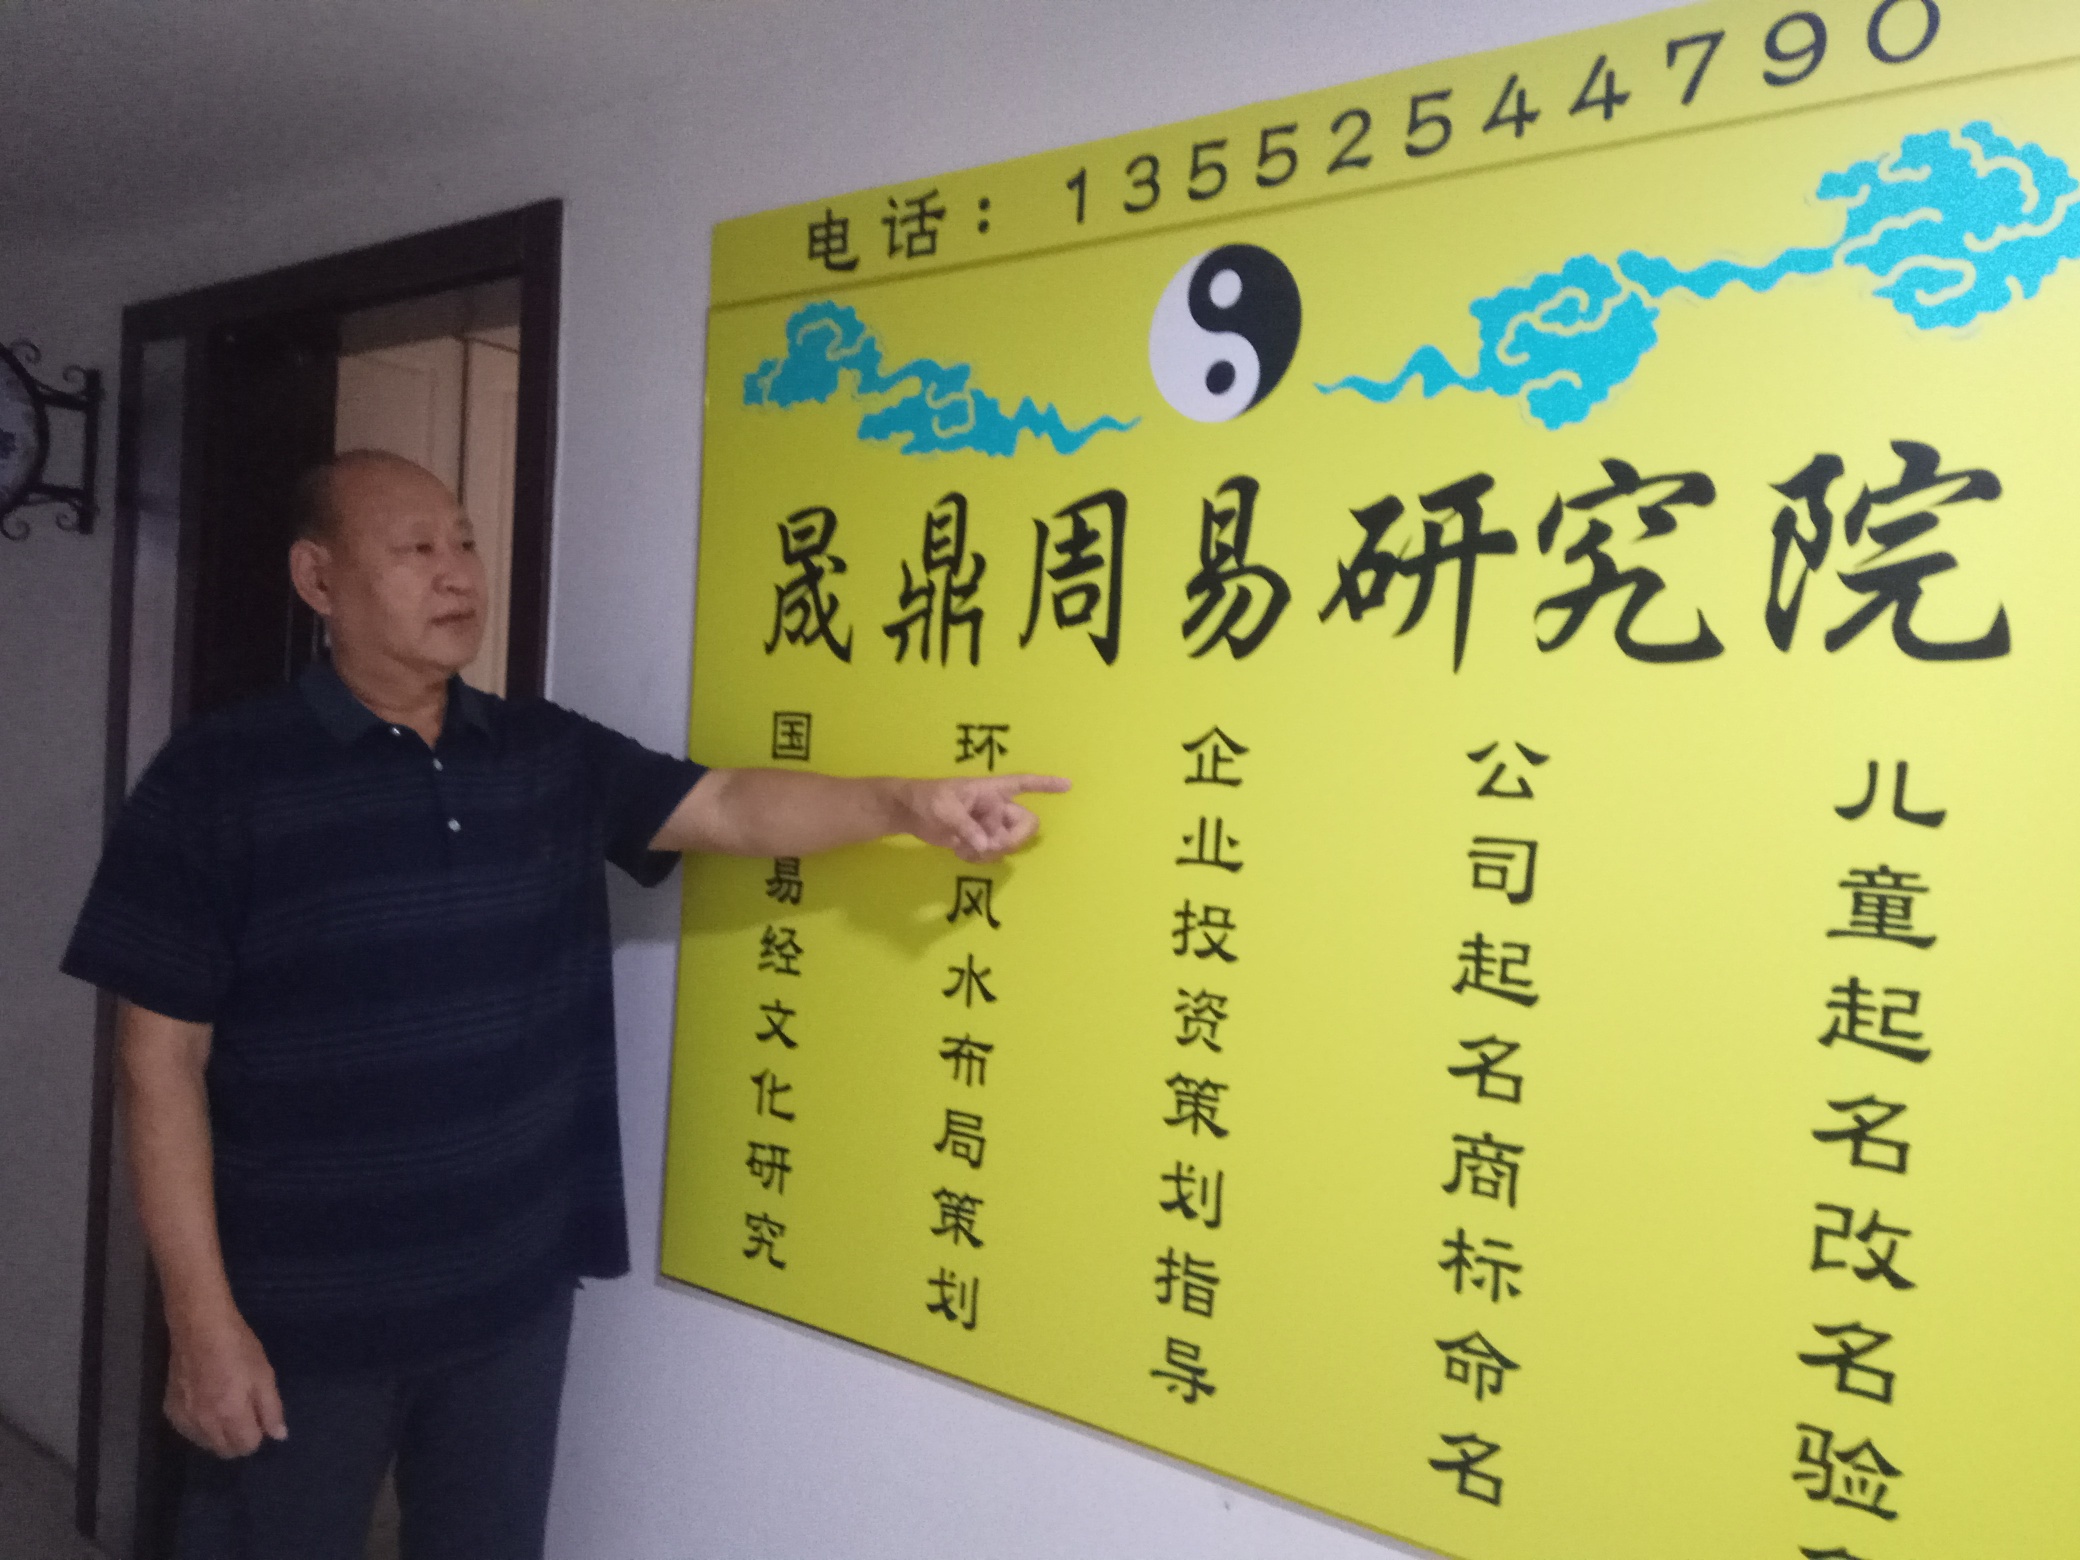 电话：13552544790
晟鼎周易研究院
国易经文化研究
环风水布局策划
企业投资策划指导
公司起名商标命名
儿童起名改名验